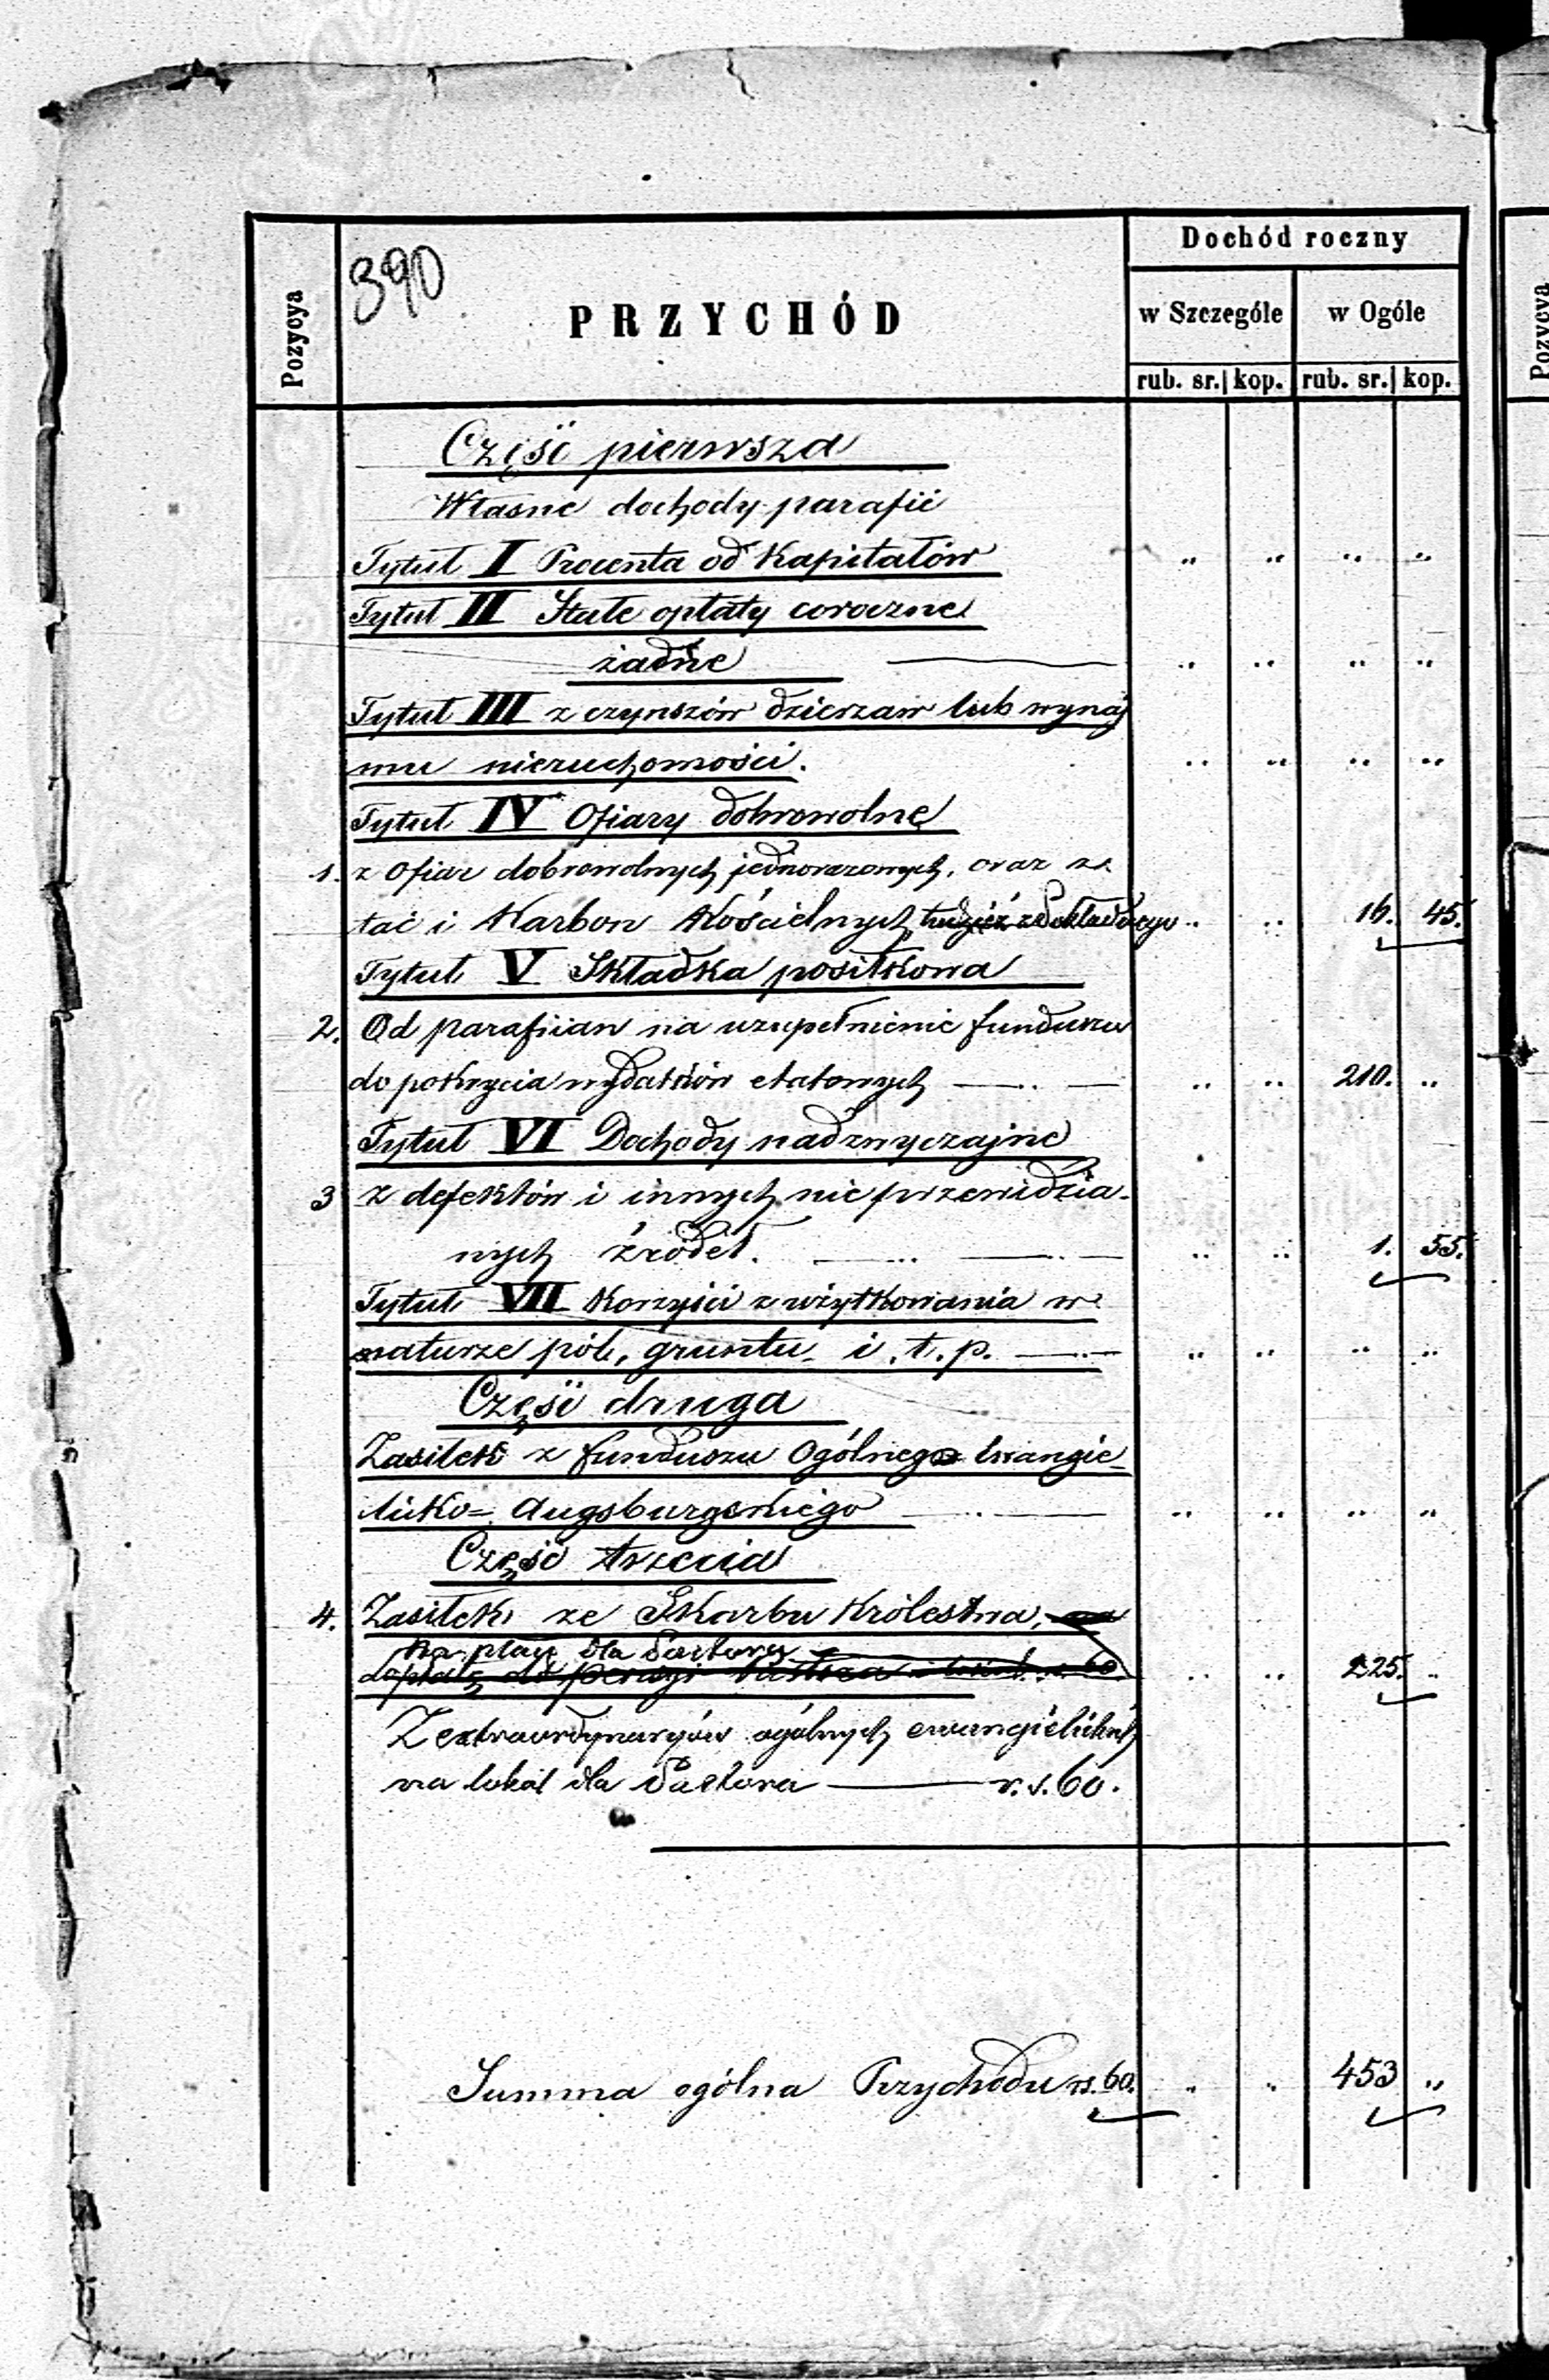 Dochód roczny
390
Pozycya
PRZYCHÓD
w Szczególe
w Ogóle
Pozycya
rub. sr. kop. rub. sr. kop.
Część pierwsza
Własne dochody parafii
Tytuł I Procenta od Kapitałów " " " "
Tytuł II Stałe opłaty coroczne
żadne " " " "
Tytuł III z czynszów dzierzaw lub wynaj
mu nieruchomości. " " " "
Tytuł IV Ofiary dobrowolne
1. z Ofiar dobrowolnych jednorazowych, oraz z
tac i Karbon Kościelnych " " 16. 45.
Tytuł V Składka posiłkowa
2. Od parafiian na uzupełnienie funduszu
do pokrycia wydatków etatowych " " 210. "
Tytuł VI Dochody nadzwyczajne
3 z defektów i innych nie przewidzia-
nych źródeł. " " 1. 55.
Tytuł VII Korzyści z użytkowania w
naturze pól, gruntu i. t. p. " " " "
Część druga
Zasiłek z funduszu Ogólnego Ewangie-
licko-Augsburgskiego " " " "
Część trzecia
4. Zasiłek ze Skarbu Królestwa,
na płacę dla Pastora
" " 225. "
Z extraordynaryów ogólnych ewangielickich
na lokal dla Pastora r. s. 60.
Summa ogólna Przychodu rs. 60. " " 453 "